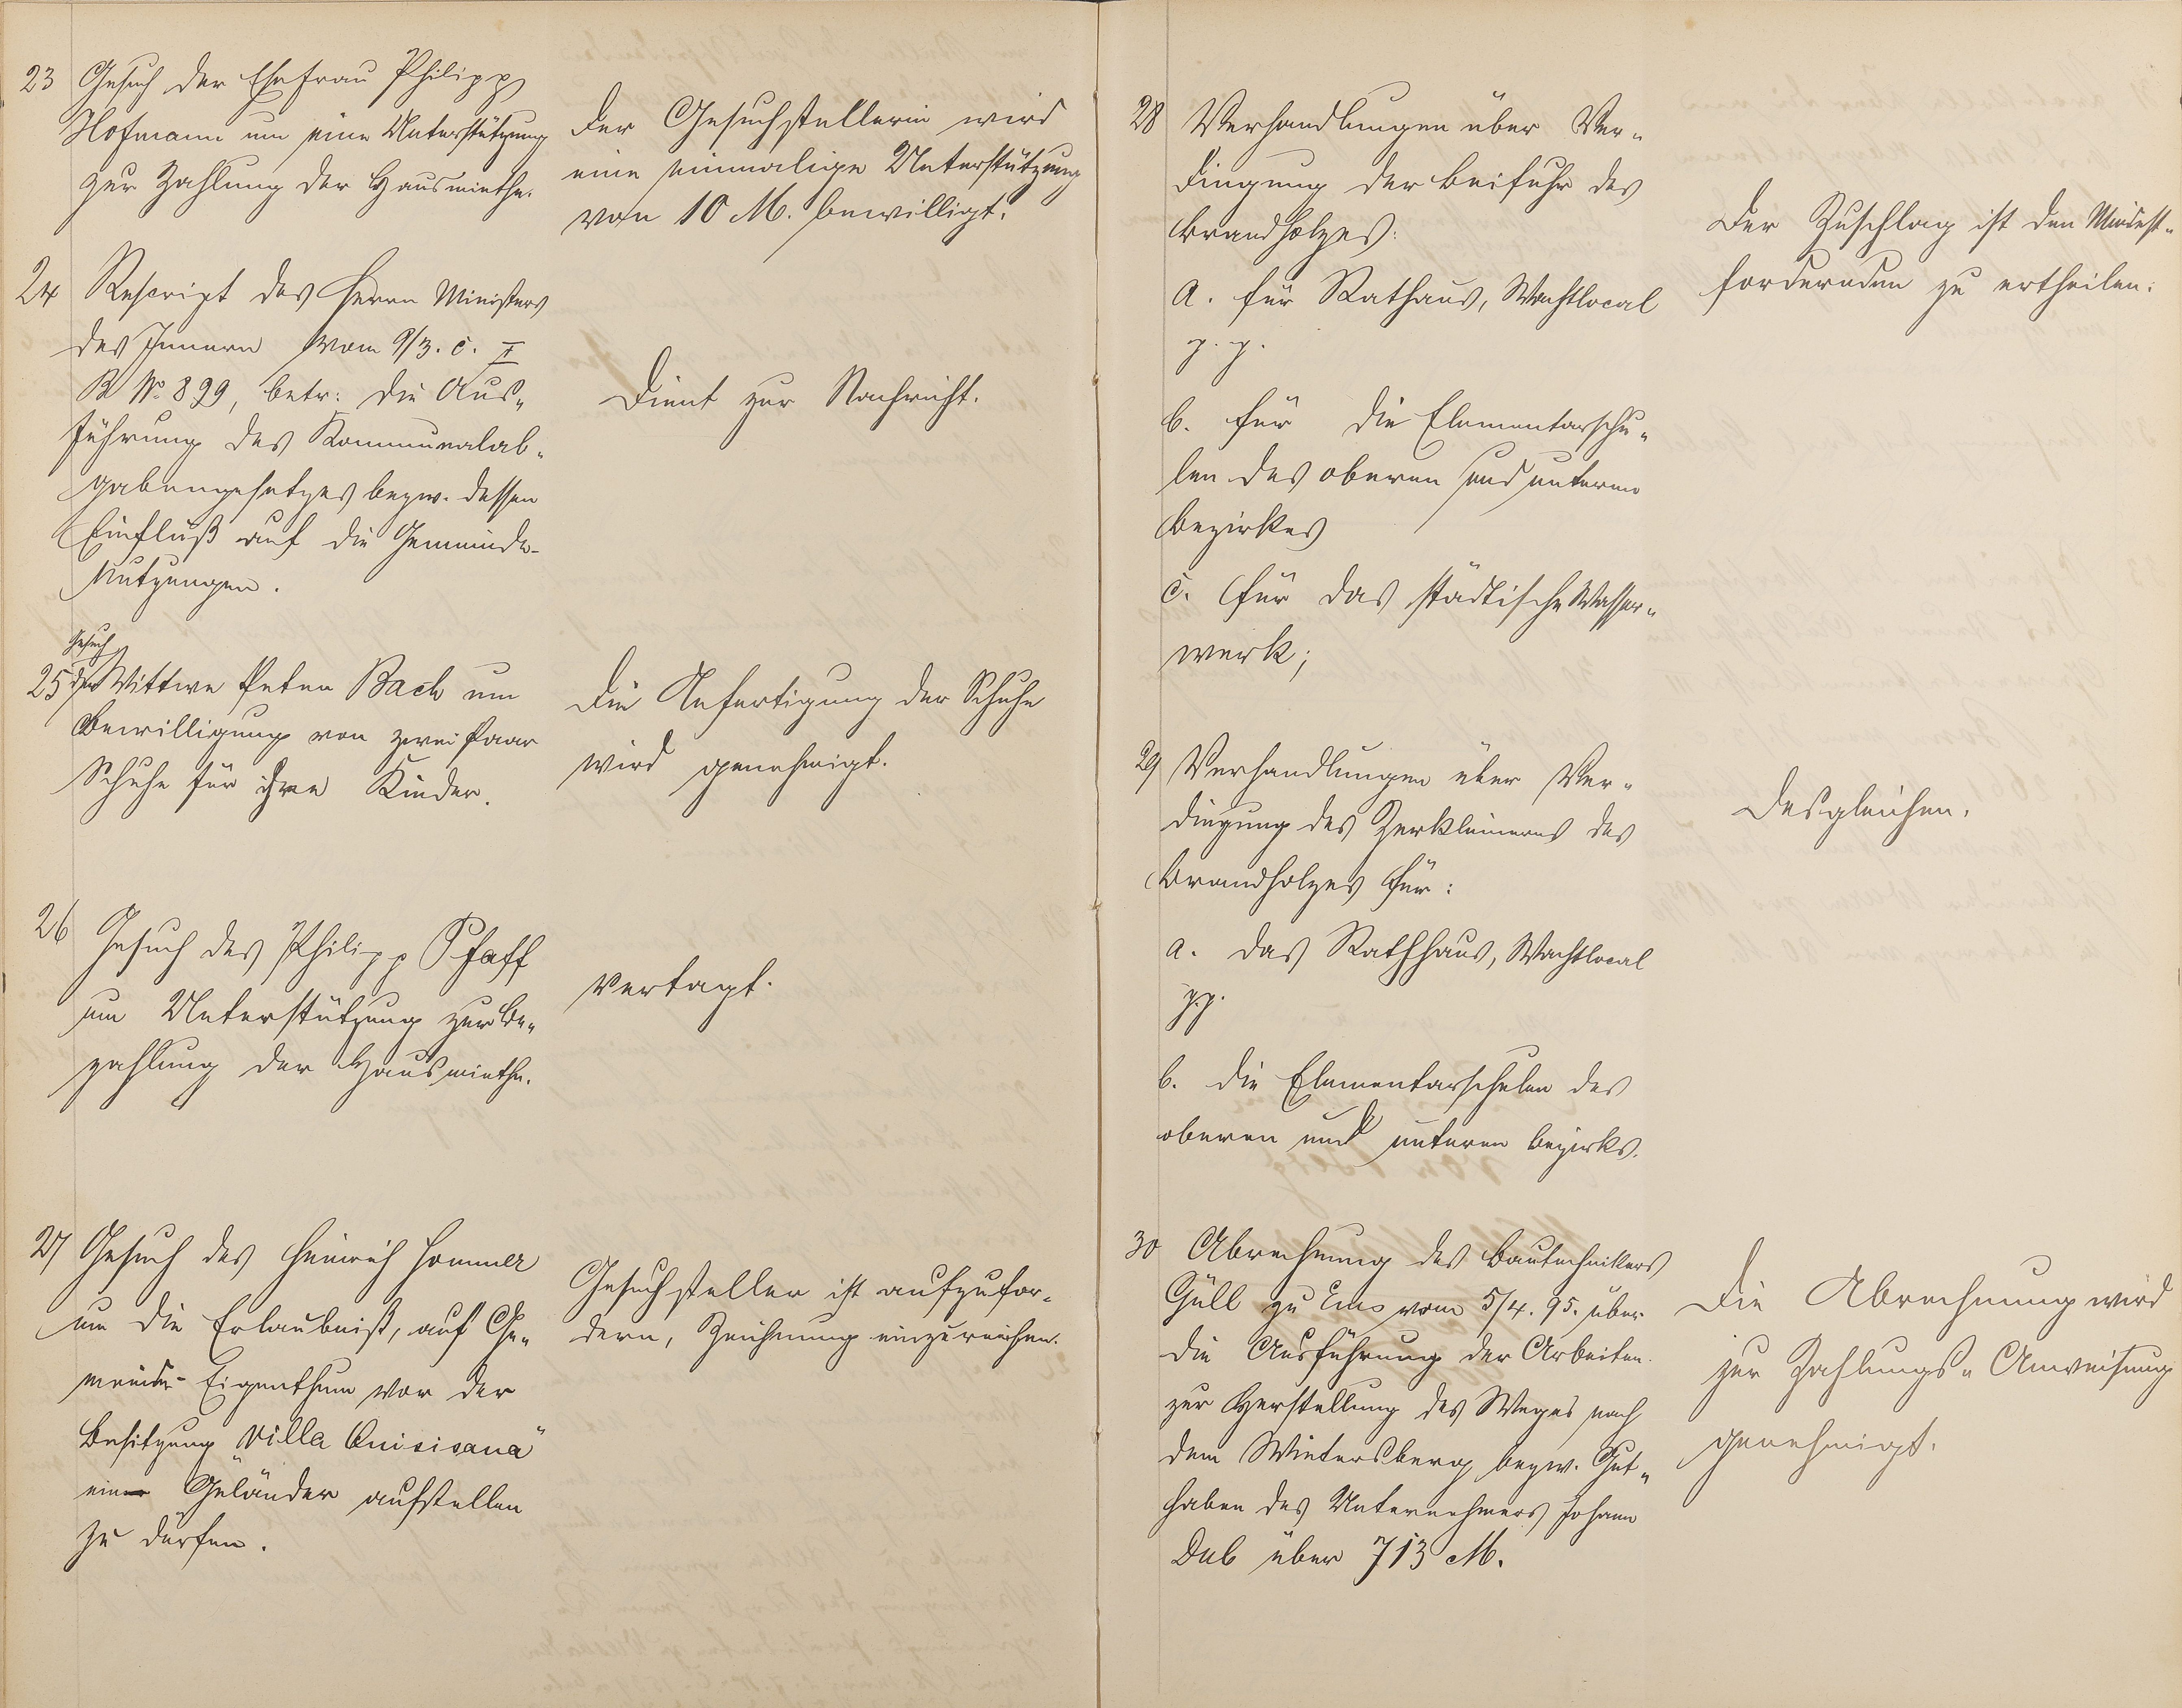 23 Gesuch der Ehefrau Philipp
Hofmann um eine Unterstützung
zur Zahlung der Hausmiethe.
Der Gesuchstellerin wird
eine einmalige Unterstützung
von 10 M. bewilligt.
24 Rescript des Herrn Ministers
des Innern vom 9/3. c. II
B No 899, betr: die Aus„
führung des Kommunalab„
gabengesetzes bezw. dessen
Einfluß auf die Gemeinde-
nutzungen.
Dient zur Nachricht.
Gesuch
25 der Wittwe Peter Bach um
Bewilligung von zwei Paar
Schuhe für ihre Kinder.
Die Anfertigung der Schuhe
wird genehmigt.
26 Gesuch des Philipp Pfaff
um Unterstützung zur Be„
zahlung der Hausmiethe.
Vertagt.
27 Gesuch des Heinrich Hommer
um die Erlaubniß, auf Ge„
meinde-Eigenthum vor der
Besitzung Villa Quisisana"
ein Geländer aufstellen
zu dürfen.
Gesuchsteller ist aufzufor„
dern, Zeichnung einzureichen.
28 Verhandlungen über Ver„
dingung der Beifuhr des
Brandholzes:
a. für Rathaus, Wachtlocal
p. p.
b. für die Elementarschu„
len des oberen und unteren
Bezirkes
c. für das städtische Wasser„
werk;
Der Zuschlag ist den Mindest„
fordernden zu ertheilen.
29 Verhandlungen über Ver„
dingung des Zerkleinerns des
Brandholzes für:
a. das Rathhaus, Wachtlocal
pp.
b. die Elementarschulen des
oberen und unteren Bezirks.
Desgleichen.
30 Abrechnung des Bautechnikers
Güll zu Ems vom 5/4. 95. über
die Ausführung der Arbeiten
zur Herstellung des Weges nach
dem Wintersberg bezw. Gut„
haben des Unternehmers Johann
Dub über 713 M.
Die Abrechnung wird
zur Zahlungs„Anweisung
genehmigt.